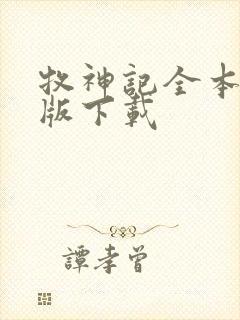 牧神記全本
版下載
譚孝曾